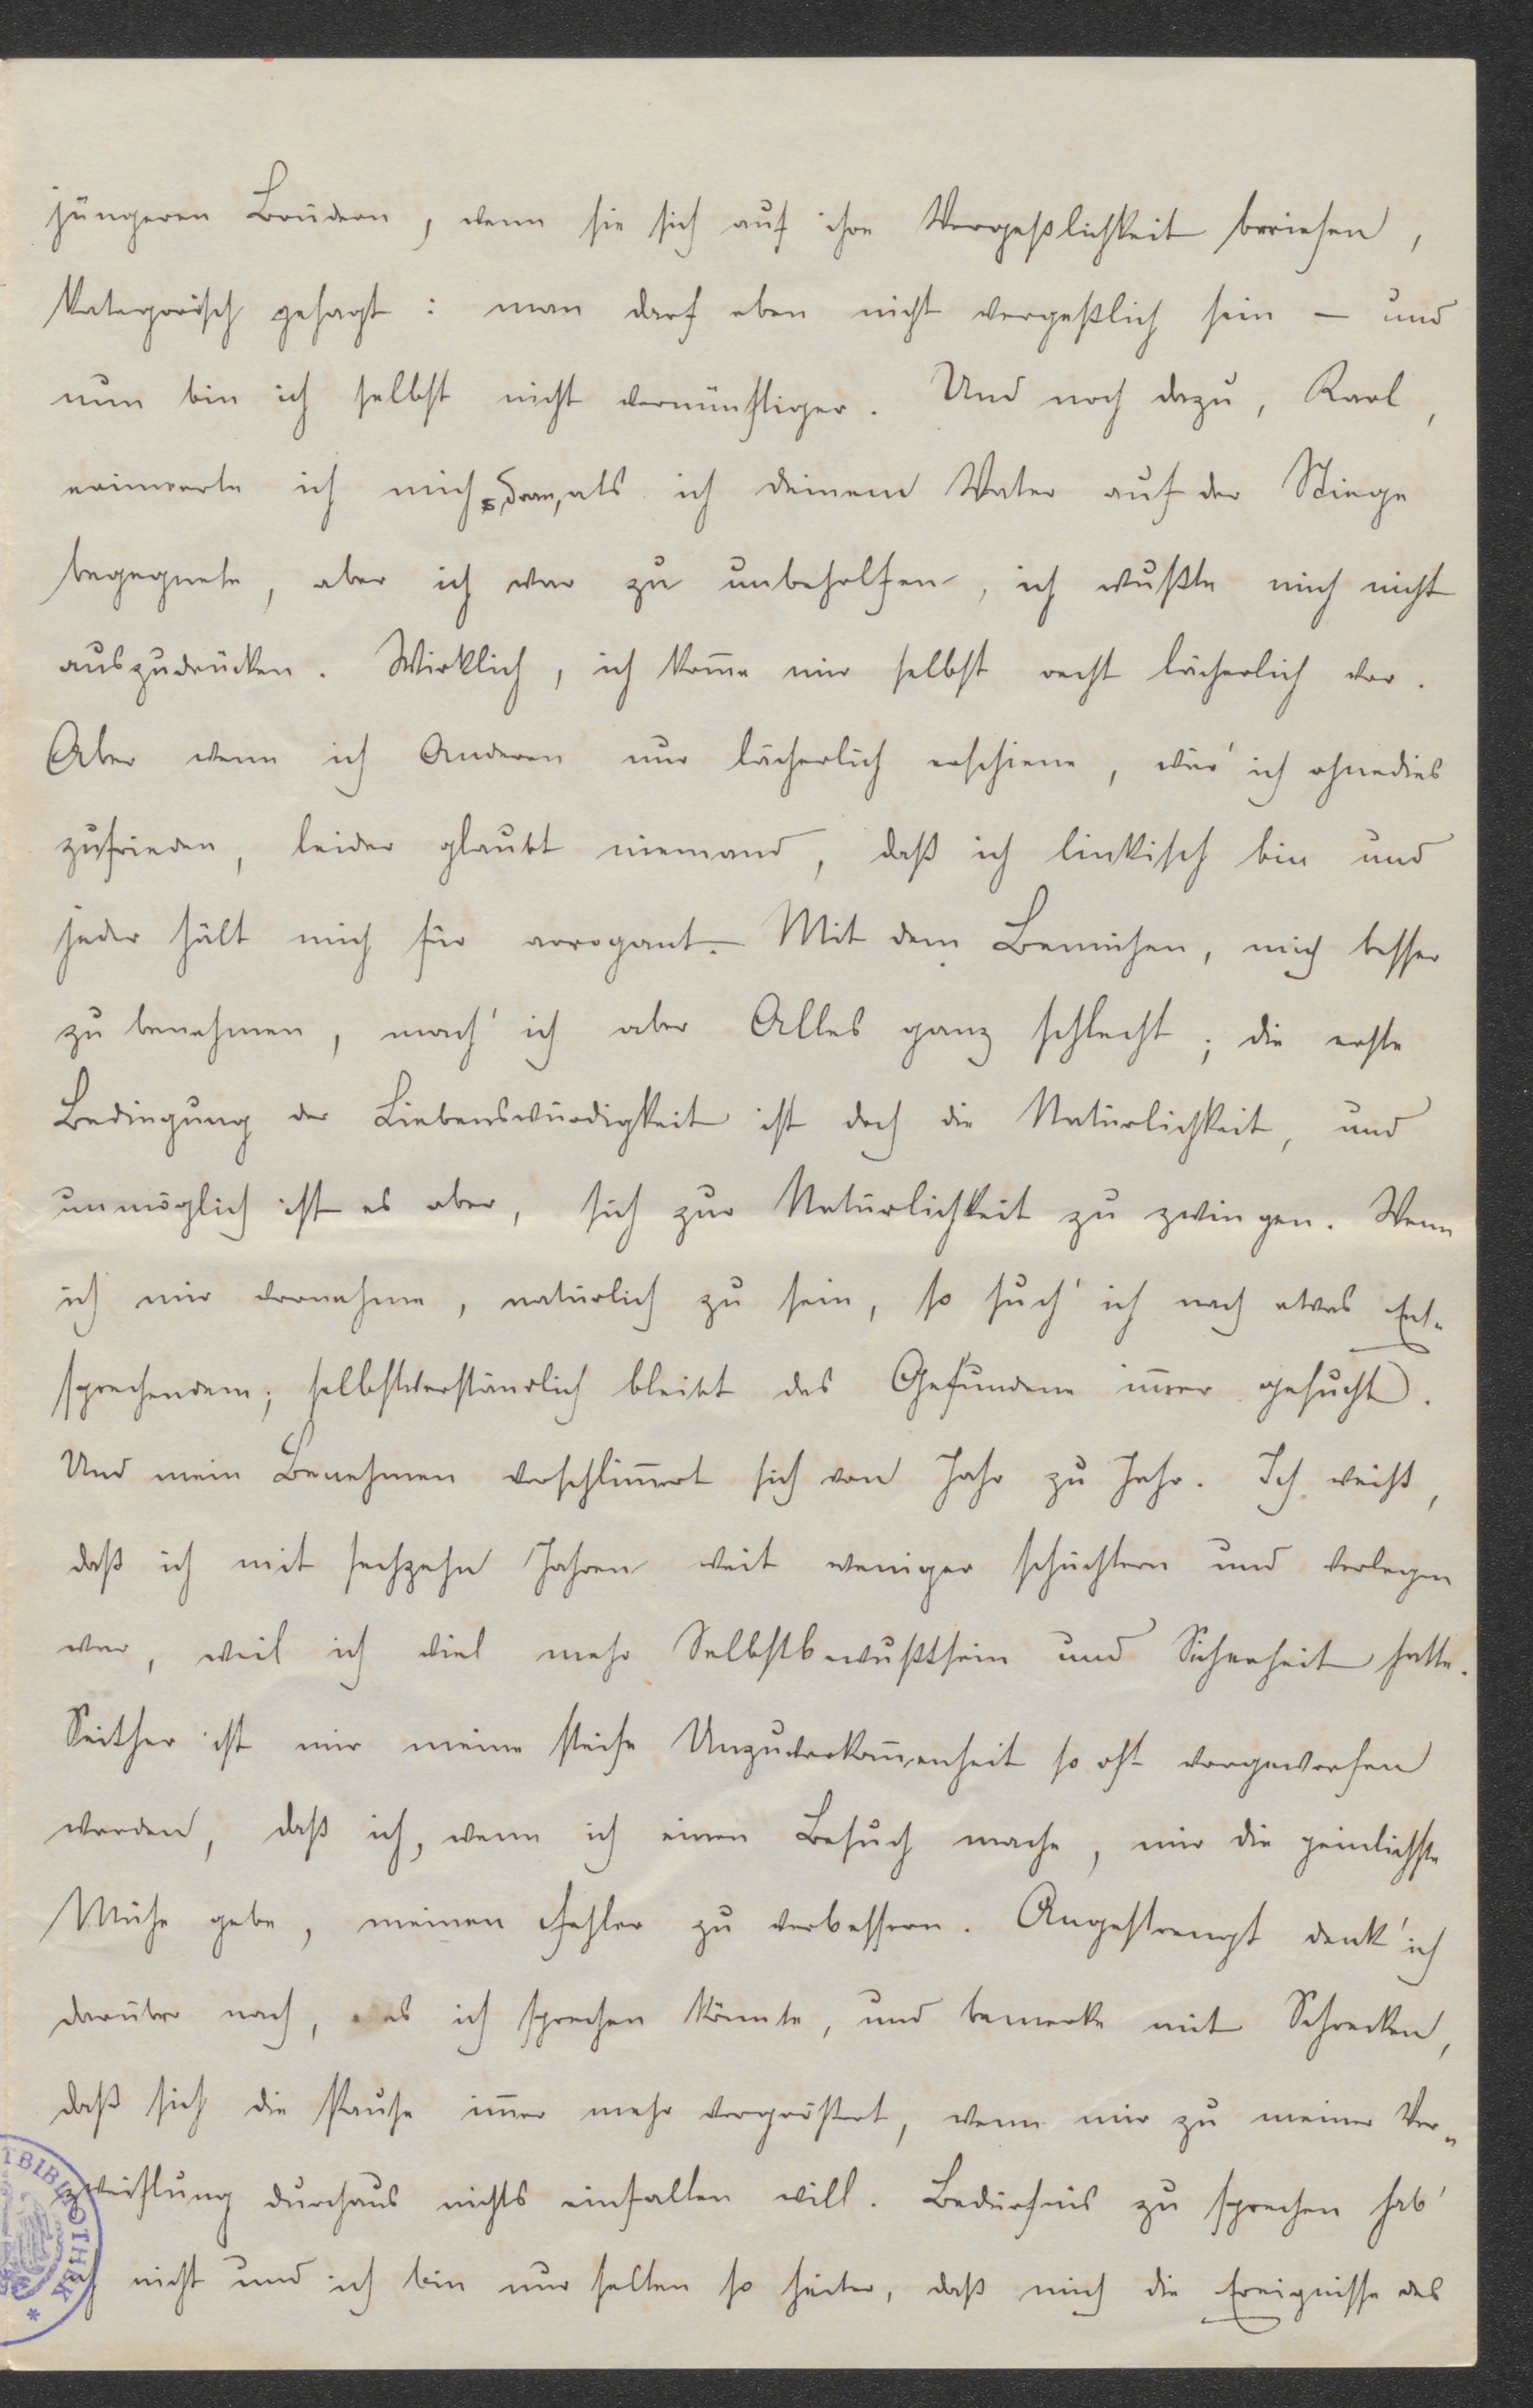 jüngeren Brüdern, wenn sie sich auf ihre Vergeßlichkeit beriefen,
kategorisch gesagt: man darf eben nicht vergeßlich sein – und
nun bin ich selbst nicht vernünftiger. Und noch dazu, Karl,
erinnerte ich mich dran, als ich deinem Vater auf der Stiege
begegnete, aber ich war zu unbeholfen, ich wußte mich nicht
auszudrücken. Wirklich, ich kom̅e mir selbst recht lächerlich vor.
Aber wenn ich Anderen nur lächerlich erschiene, wär' ich ohnedies
zufrieden, leider glaubt niemand, daß ich linkisch bin und
jeder hält mich für arrogant. – Mit dem Bemühen, mich besser
zu benehmen, mach' ich aber Alles ganz schlecht; die erste
Bedingung der Liebenswürdigkeit ist doch die Natürlichkeit, und
unmöglich ist es aber, sich zur Natürlichkeit zu zwingen. Wenn
ich mir vornehme, natürlich zu sein, so such' ich nach etwas Ent-
sprechendem; selbstverständlich bleibt das Gefundene im̅er gesucht.
Und mein Benehmen verschlim̅ert sich von Jahr zu Jahr. Ich weiß,
daß ich mit sechzehn Jahren weit weniger schüchtern und verlegen
war, weil ich viel mehr Selbstbewußtsein und Sicherheit hatte.
Seither ist mir meine steife Unzuvorkom̅enheit so oft vorgeworfen
worden, daß ich, wenn ich einen Besuch mache, mir die peinlichste
Mühe gebe, meinen Fehler zu verbessern. Angestrengt denk' ich
darüber nach, was ich sprechen könnte, und bemerke mit Schrecken,
daß sich die Pause im̅er mehr vergrößert, wenn mir zu meiner Ver-
zweiflung durchaus nichts einfallen will. Bedürfnis zu sprechen hab'
ich nicht und ich bin nur selten so heiter, daß mich die Ereignisse des